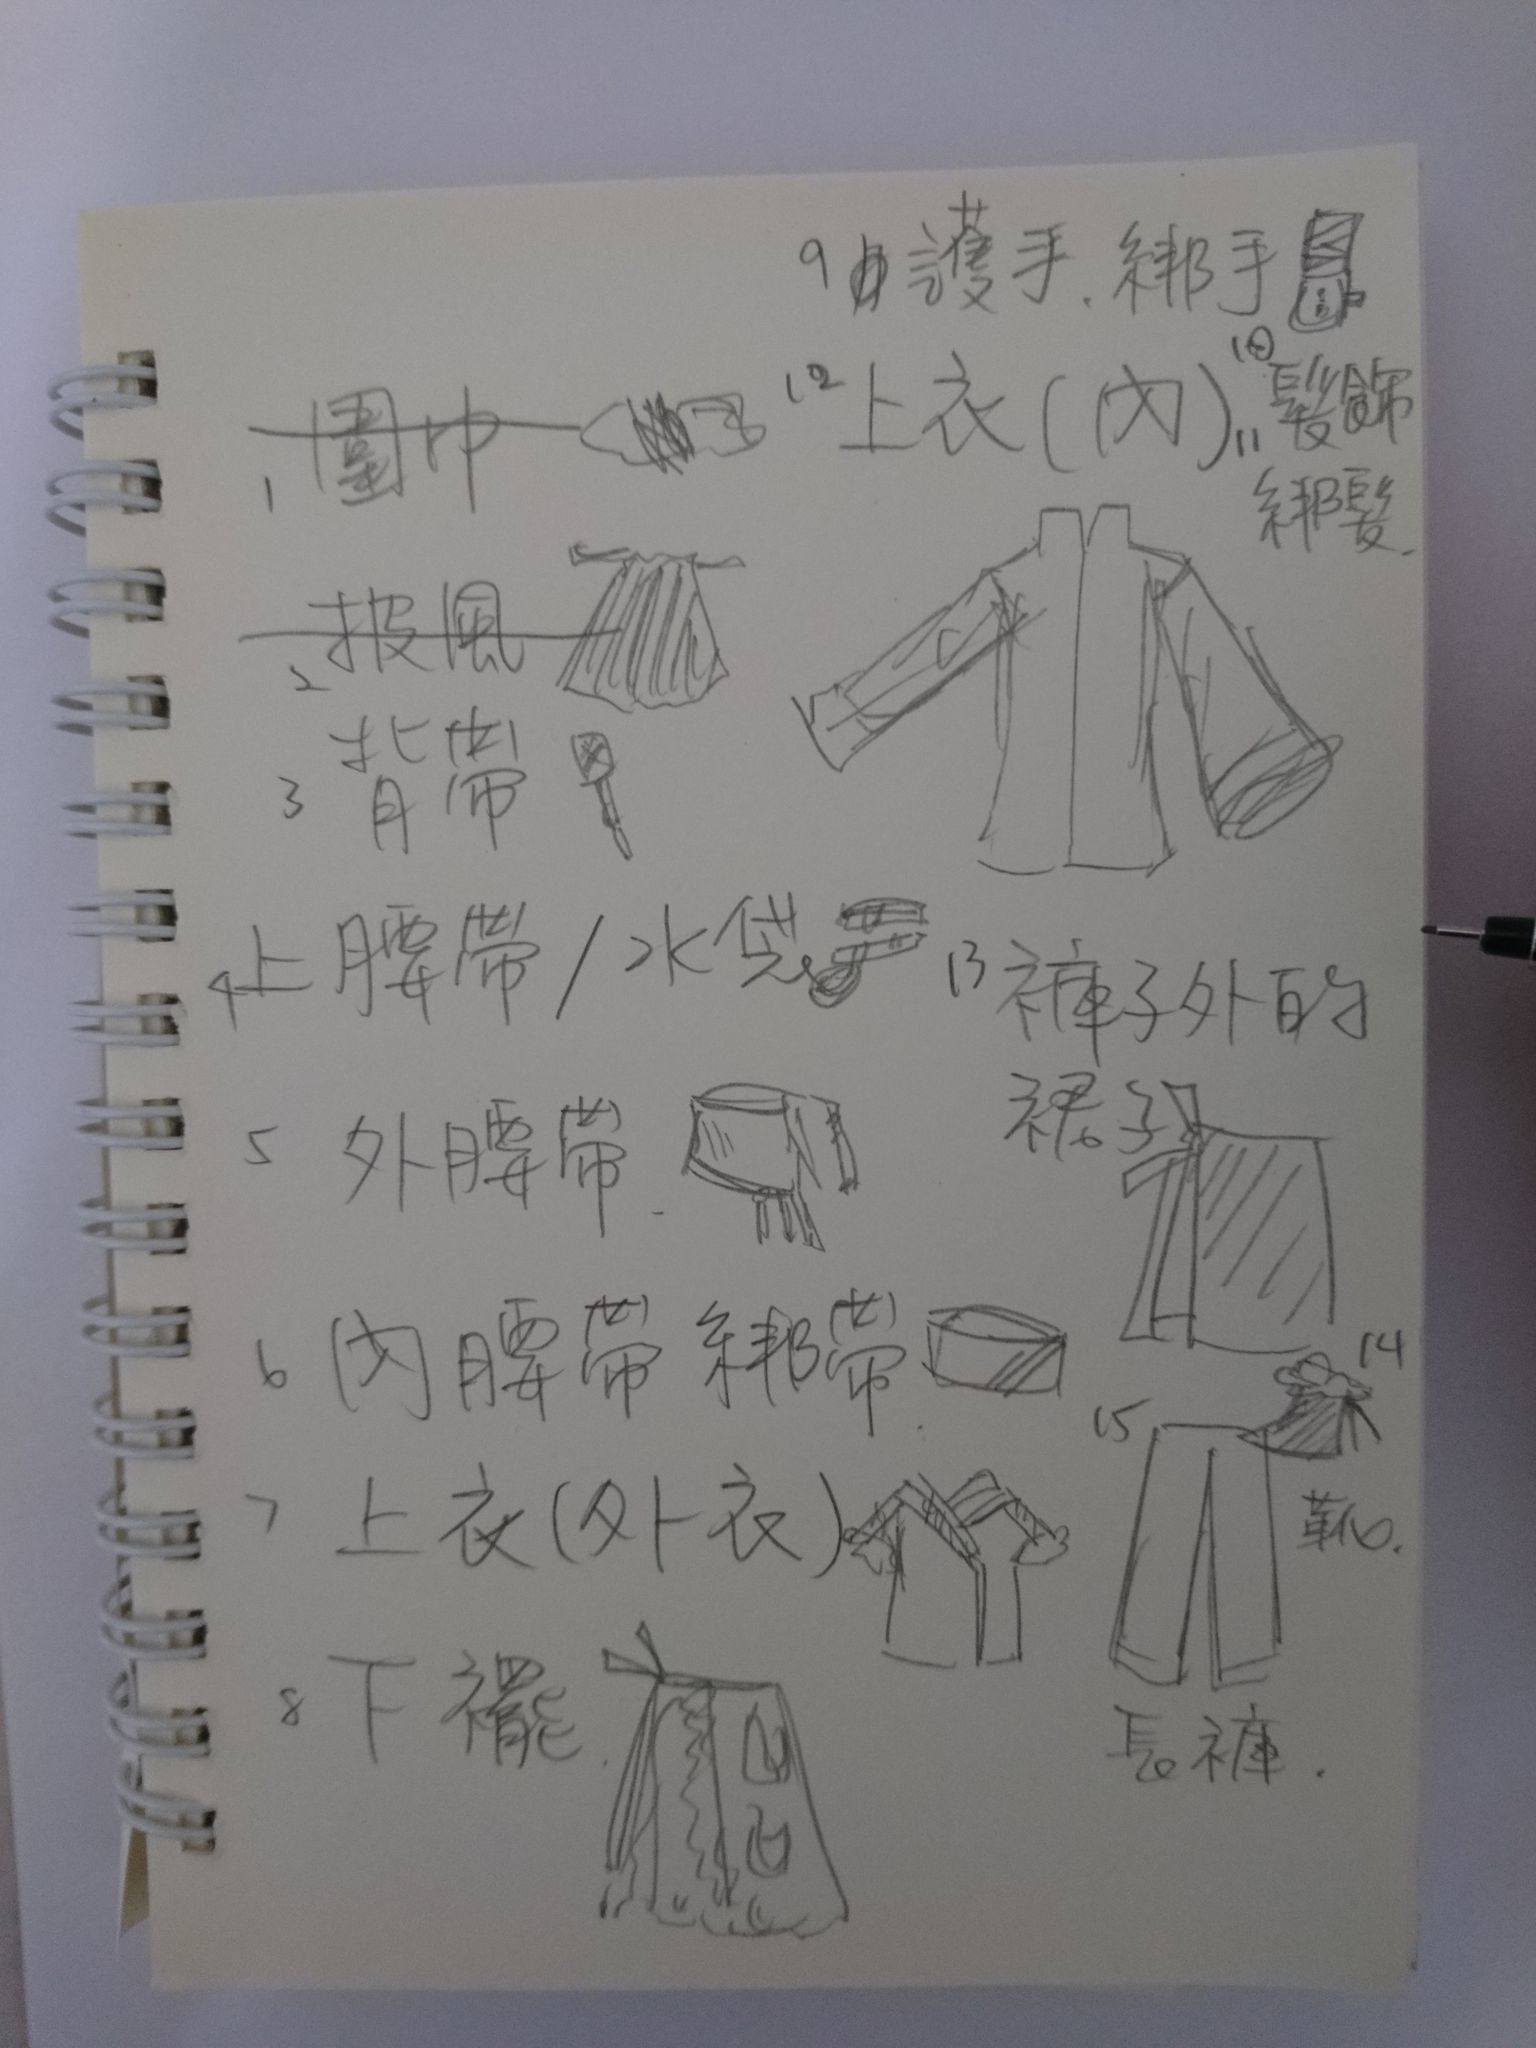 1 圍巾
2 披風
3 背帶
4 上腰帶/水袋
5 外腰帶.
6 內腰帶 綁帶.
7 上衣(外衣)
8 下襬.
9 護手.綁手
10 髮飾
11 綁髮.
12 上衣(內)
13 褲子外的
裙子
14
靴.
15
長褲.